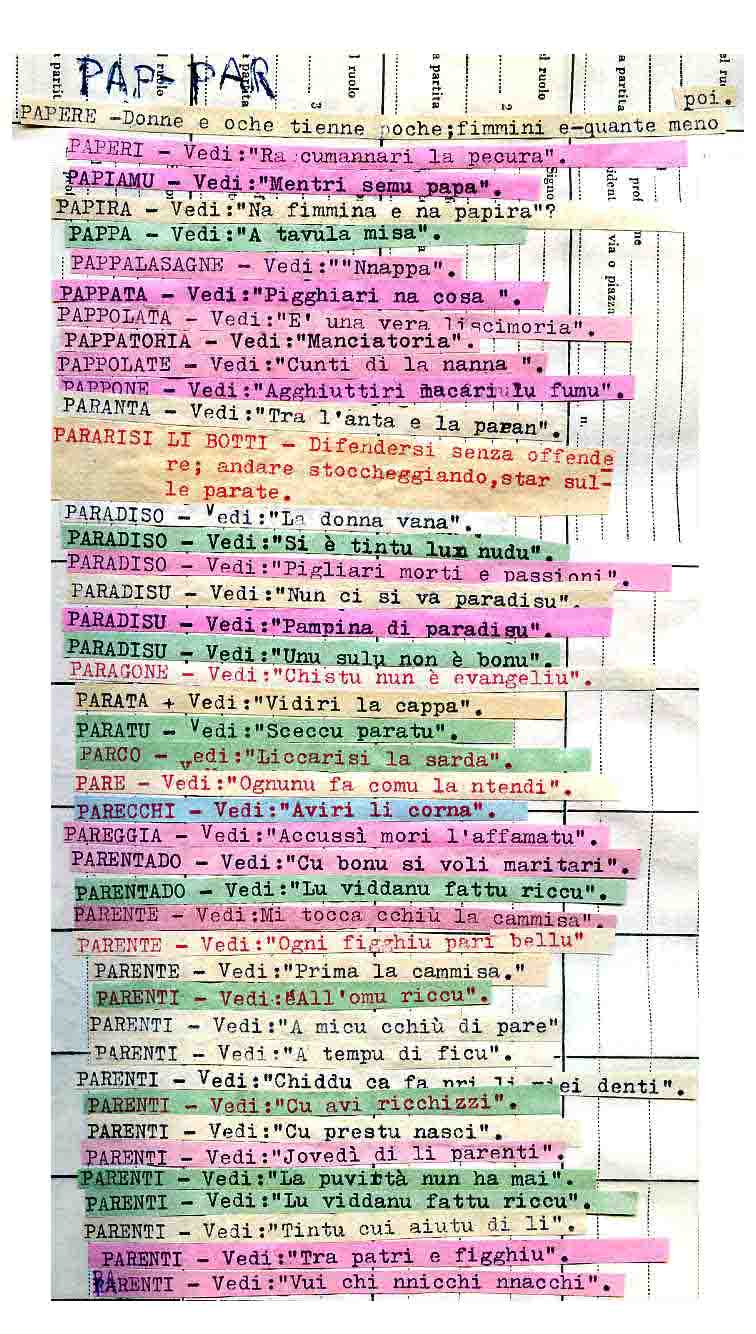 PAP-PAR
poi.
PAPERE -Donne e oche tienne poche;fimmini e-quante meno
PAPERI - Vedi:"Ra cumannari la pecura".
PAPIAMU - Vedi:"Mentri semu papa".
PAPIRA - Vedi:"Na fimmina e na papira"?
PAPPA - Vedi:"A tavula misa".
PAPPALASAGNE - Vedi:""Nnappa".
PAPPATA - Vedi:"Pigghiari na cosa ".
PAPPOLATA - Vedi:"E' una vera liscimoria".
PAPPATORIA - Vedi:"Manciatoria".
PAPPOLATE - Vedi:"Cunti di la nanna ".
PAPPONE - Vedi:"Agghiuttiri macari lu fumu".
PARANTA - Vedi:"Tra l'anta e la paran".
PARARISI LI BOTTI - Difendersi senza offende
re; andare stoccheggiando,star sul-
le parate.
PARADISO - Vedi:"La donna vana".
PARADISO - Vedi:"Si è tintu lun nudu".
PARADISO - Vedi:"Pigliari morti e passioni".
PARADISU - Vedi:"Nun ci si va paradisu".
PARADISU - Vedi:"Pampina di paradisu".
PARADISU - Vedi:"Unu sulu non è bonu".
PARAGONE - Vedi:"Chistu nun è evangeliu".
PARATA + Vedi:"Vidiri la cappa".
PARATU - Vedi:"Sceccu paratu".
PARCO - Vedi:"Liccarisi la sarda".
PARE - Vedi:"Ognunu fa comu la ntendi".
PARECCHI - Vedi:"Aviri li corna".
PAREGGIA - Vedi:"Accussì mori l'affamatu".
PARENTADO - Vedi:"Cu bonu si voli maritari".
PARENTADO - Vedi:"Lu viddanu fattu riccu".
PARENTE - Vedi:Mi tocca cchiù la cammisa".
PARENTE - Vedi:"Ogni figghiu pari bellu"
PARENTE - Vedi:"Prima la cammisa."
PARENTI - Vedi:"All'omu riccu".
PARENTI - Vedi:"A micu cchiù di pare"
PARENTI - Vedi:"A tempu di ficu".
PARENTI - Vedi:"Chiddu ca fa pri li miei denti".
PARENTI - Vedi:"Cu avi ricchizzi".
PARENTI - Vedi:"Cu prestu nasci".
PARENTI - Vedi:"Jovedì di li parenti".
PARENTI - Vedi:"La puvirtà nun ha mai".
PARENTI - Vedi:"Lu viddanu fattu riccu".
PARENTI - Vedi:"Tintu cui aiutu di li".
PARENTI - Vedi:"Tra patri e figghiu".
PARENTI - Vedi:"Vui chi nnicchi nnacchi".